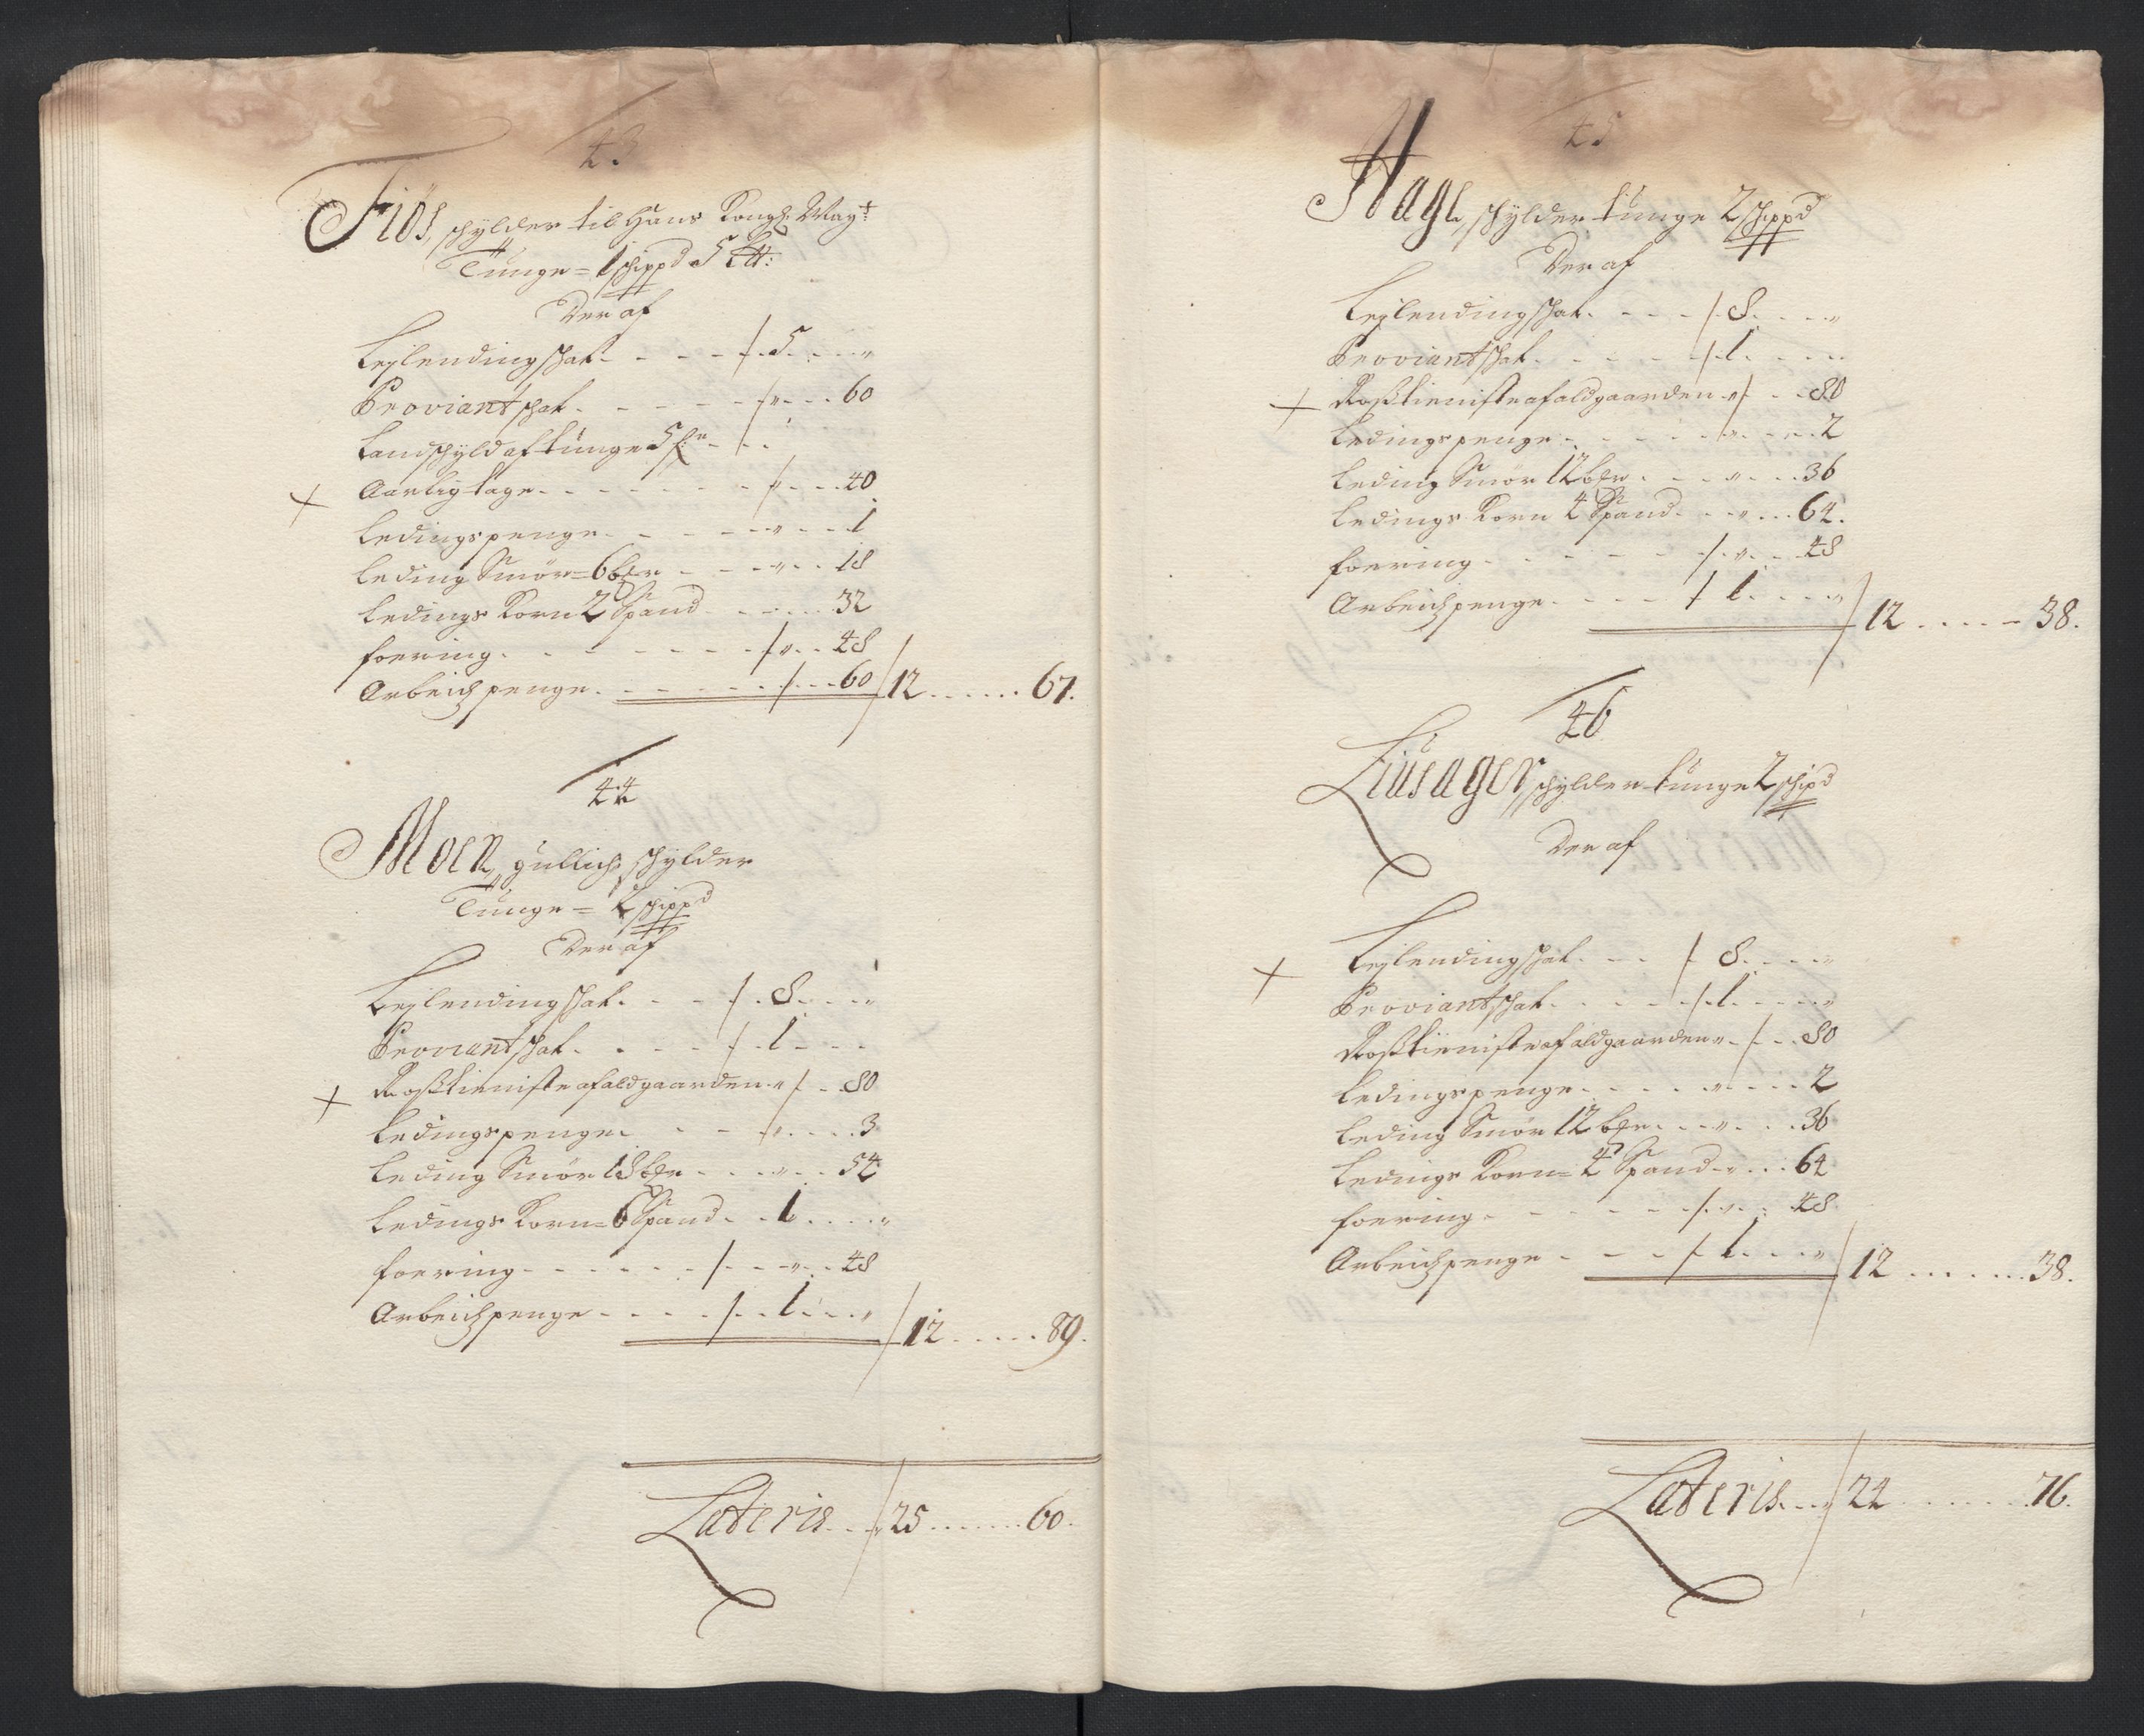 43
Fiös, schylder til Hans Kongl: May:t
Tunge = 1 schippd 5 L℔:
Der af
Leylendingschat - - - - 5 - - - "
Proviantschat - - - - - " - - - 60
Landschyld af tunge 5 - - -
Aarlig tage - - - - - - - - - 40
Ledingspenge - - - - - " - - - 1
Leding Smör = 6 - - - " - - 18
Ledings Korn 2 Spand - - - - - 32
foering - - - - - - - " - - 48
Arbeidspenge - - - - - - - - 60 12 - - - - - - 67.
44
Moen, schylder
Tunge = 2 schippd
Der af
Leylendingschat - - - - 8 - - - "
Proviantschat - - - - - 1 - - -
Rosztieniste af aldgaarden " - - 80
Ledingspenge - - - " - - - - 3
Leding Smör 18 - - - " - - 54
Ledings Korn = 6 Spand - - 1 - - - - "
foering - - - - - - - - - " - - 48
Arbeidspenge - - - - - - 1 - - - " 12 - - - - - 89.
Lateris - - - 25 - - - - - - - 60.
45
Hage, schylder tunge 2 schippd
Der af
Leylendingschat - - - - 8 - - - "
Proviantschat - - - - - 1 - - - -
Rosztieniste af aldgaarden " - - 80
Ledingspenge - - - - - " - - - - 2
Leding Smör 12 - - - - " - - - 36
Ledings Korn 4 Spand - - - " - - - 64.
foering - - - - - - " - - 48
Arbeidspenge - - - - 1 - - - - " 12 - - - - - 38.
46
Liusager, schylder tunge 2 schipd
Der af
Leylendingschat - - - 8 - - - - "
Proviantschat - - - - - 1 - - - - "
Rosztieniste af aldgaarden " - - - 80
Ledingspenge - - - - - " - - - - 2
Leding Smör 12 - - - " - - - 36
Ledings Korn = 4 Spand - " - - - 64
foering - - - - - - " - - 48
Arbeidspenge - - - - 1 - - - " 12 - - - - - - 38.
Lateris - - - 24 - - - - - - - 76.